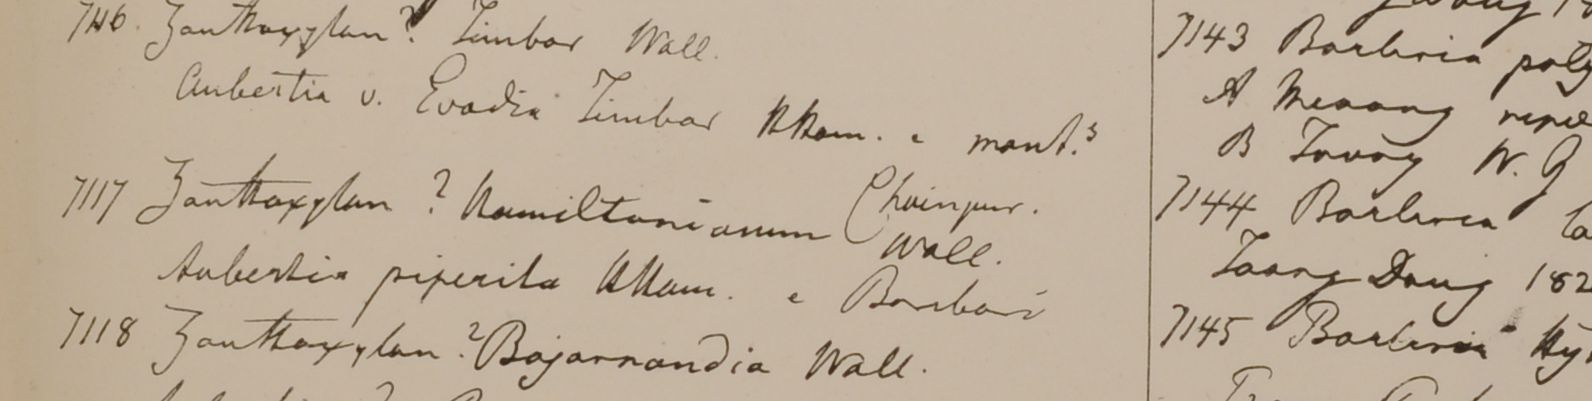 7116. Zanthoxylon? Timbor Wall.
Aubertia v. Evodia Timbor HHam. e mont.s
7117 Zanthoxylon ? Hamiltonianum Chainpur.
Wall.
Aubertia piperita HHam. e Boribari
7118 Zanthoxylon ? Bajarnandia Wall.
7143 Barleria poly
A Menang
B Tavoy W. G
7144 Barleria
Taong Dong 182
7145 Barleria Hy